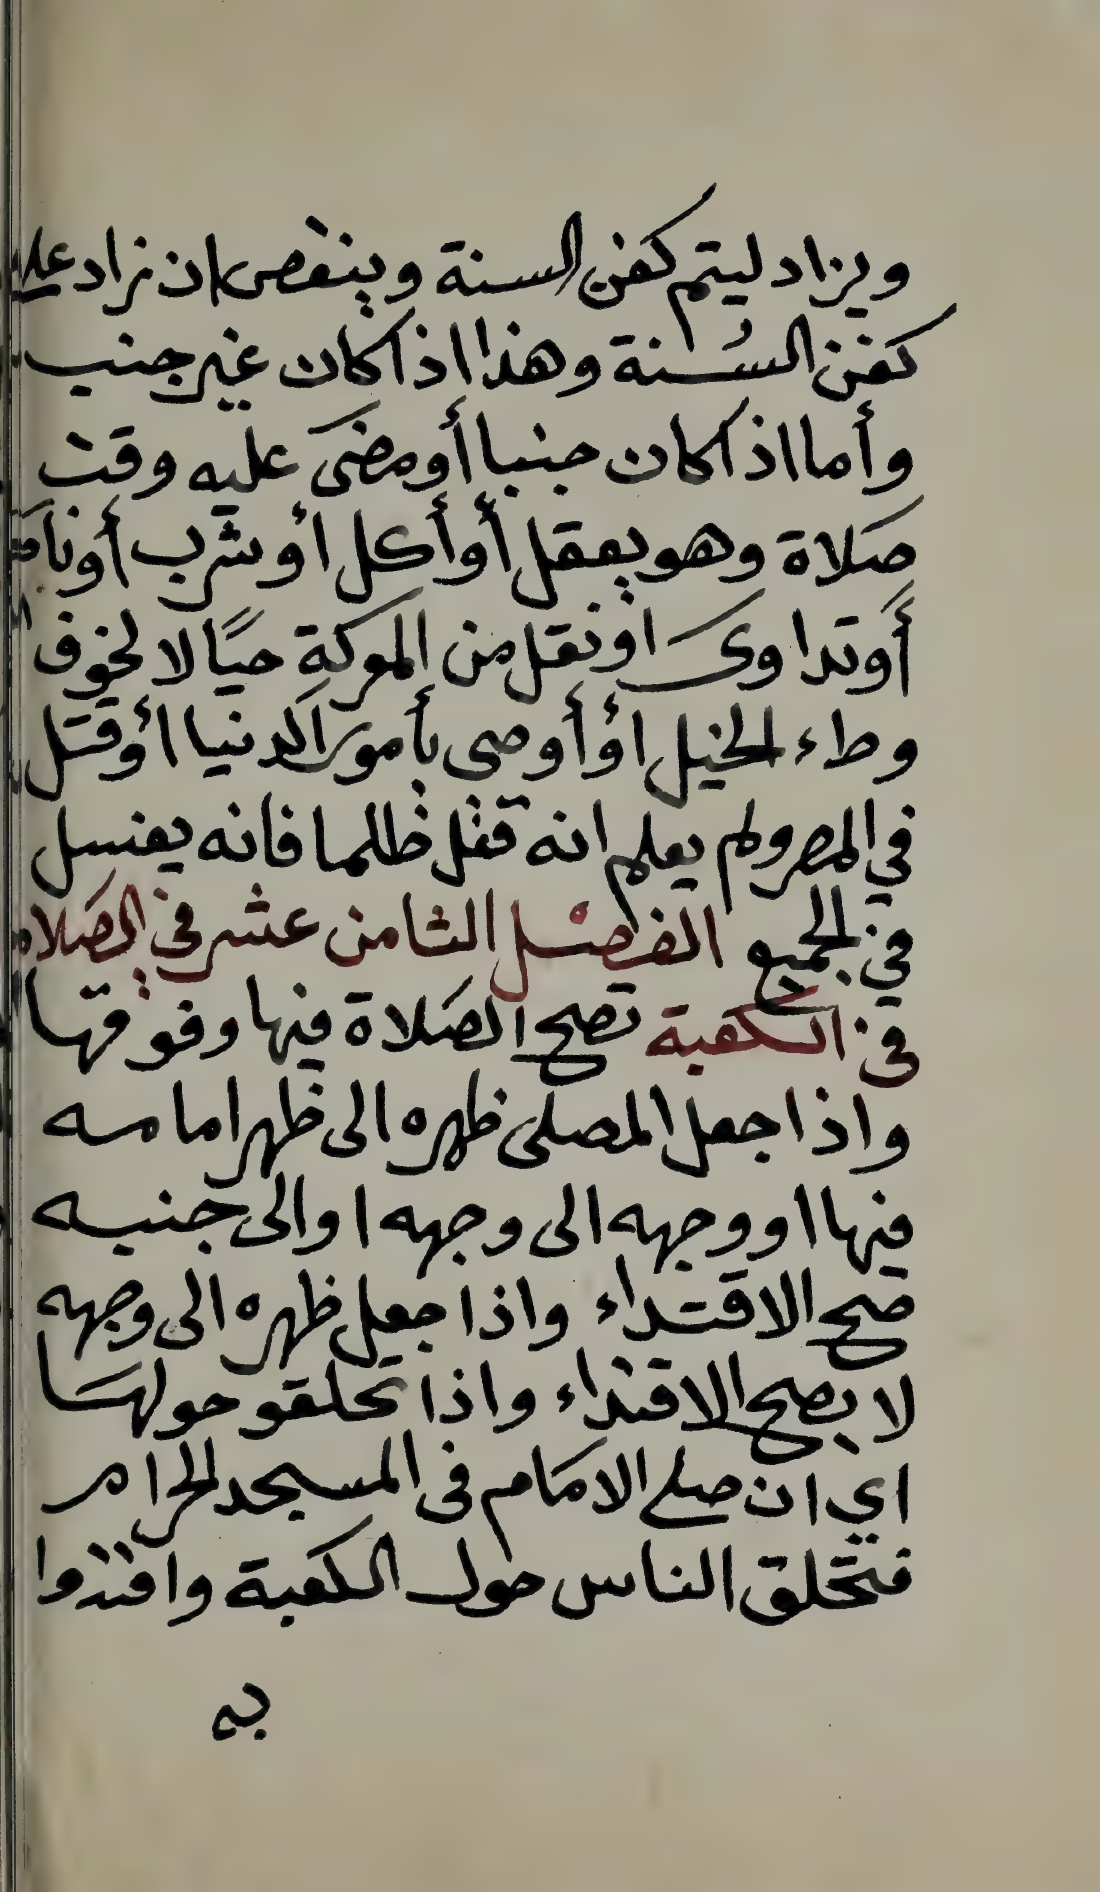 ويزاد ليتم كفن السنة وينقص ان زاد على
كفن السنة وهذا اذا كان غير جنب
وأما اذا كان جنبا أو مضى عليه وقت
صلاة وهو يعقل أو أكل أو شرب أو نام
أو تداوى او نقل من المعركة حيا لا لخوف
وطء الخيل أو أوصى بأمور الدنيا أو قتل
في المصر ولم يعلم انه قتل ظلما فانه يغسل
في الجميع الفصل الثامن عشر في الصلاة
في الكعبة تصح الصلاة فيها وفوقها
واذا جعل المصلى ظهره الى ظهر امامه
فيها او وجهه الى وجهه او الى جنبه
صح الاقتداء واذا جعل ظهره الى وجهه
لا يصح الاقتداء واذا تحلقو حولها
اي ان صلى الامام في المسجد الحرام
فتحلق الناس حول الكعبة واقتدوا
به